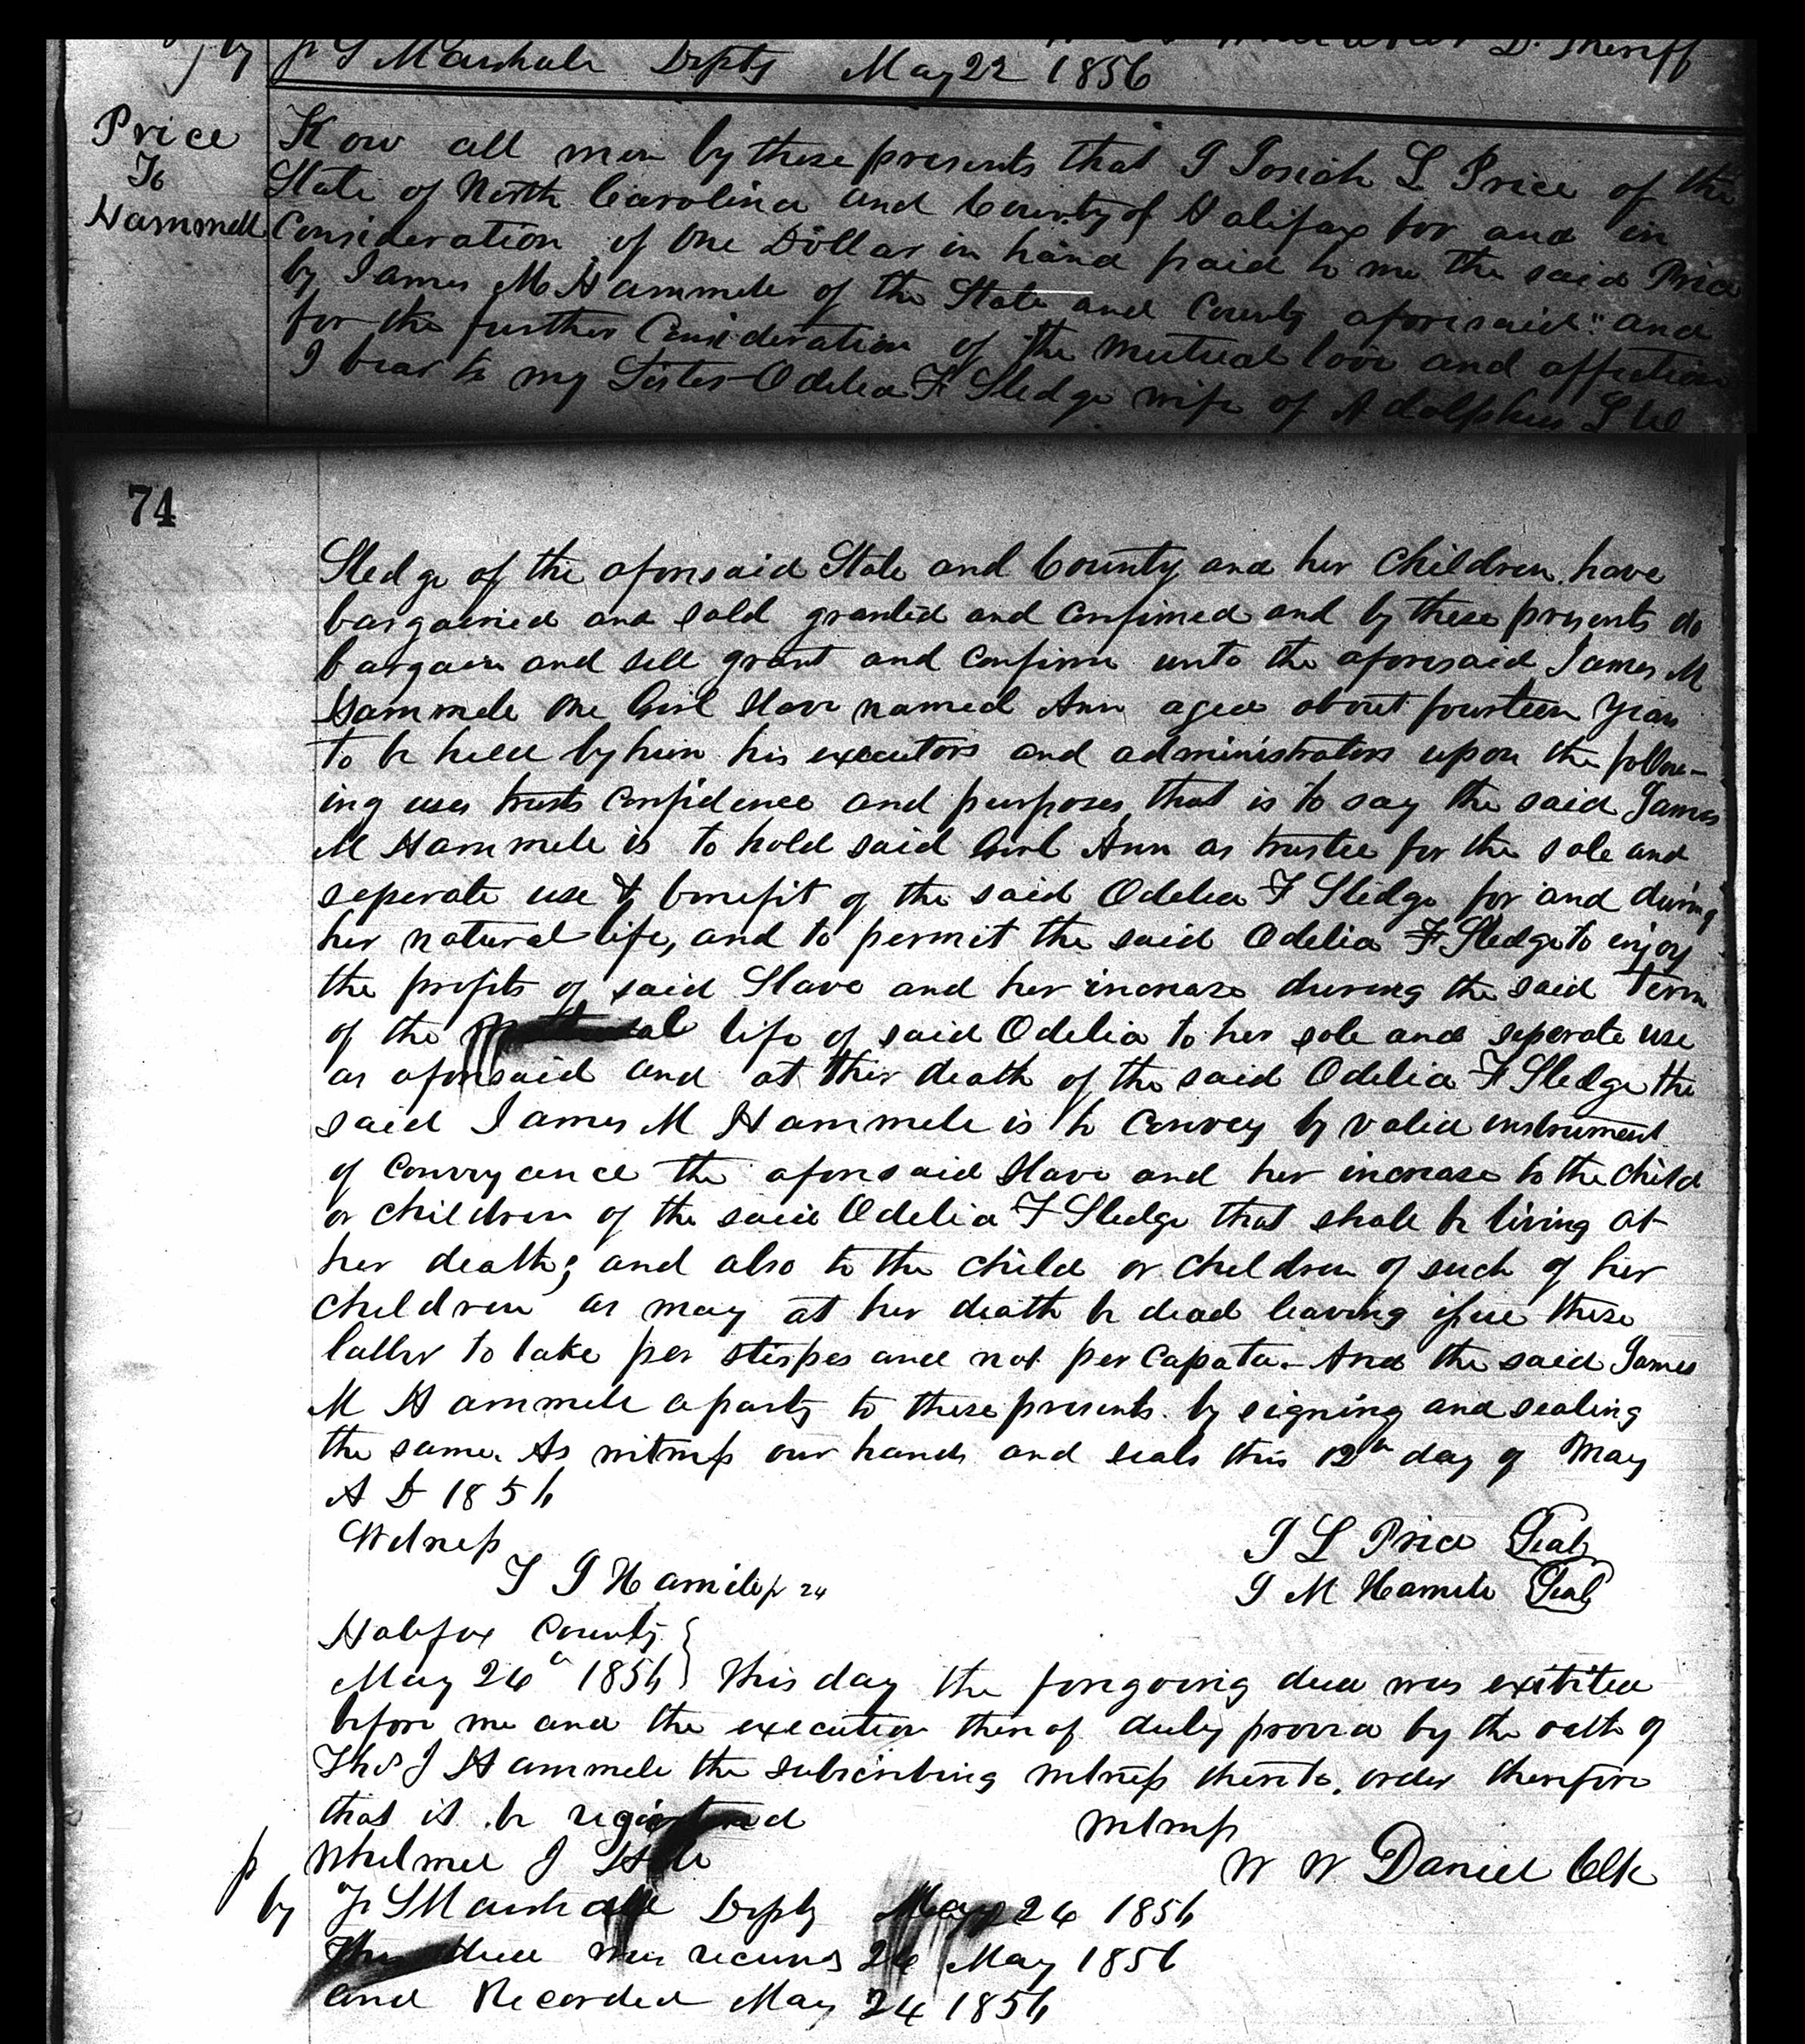 by J S Marshall Depty May 22 1856 D. Sheriff
Price
To
Hammell
Know all men by these presents that I Josiah L Price of the
State of North Carolina and County of Halifax for and in
Consideration of One Dollar in hand paid to me the said Price
by James M Hammell of the State and County aforesaid" and
for the further Consideration of the mutual love and affection
I bear to my Sister Odelia F Sledge wife of Adolphus
74
Sledge of the aforesaid State and County and her Children have
bargained and sold granted and confirmed and by these presents do
bargain and sell grant and confirm unto the aforesaid James M
Hammell One Girl Slave named Ann aged about fourteen years
to be held by him his executors and administrators upon the follow-
ing uses trusts confidence and purposes, that is to say the said James
M Hammell is to hold said Girl Ann as trustee for the sole and
seperate use & benefit of the said Odelia F Sledge for and during
her natural life, and to permit the said Odelia F Sledge to enjoy
the profits of said Slave and her increase during the said Term
of the natural life of said Odelia to her sole and seperate use
as aforesaid and at their death of the said Odelia F Sledge the
said James M Hammell is to convey by valid instrument
of conveyance the aforesaid Slave and her increase to the child
or children of the said Odelia F Sledge that shall be living at
her death; and also to the child or children of such of her
children as may at her death be dead leaving issue these
latter to take per stirpes and not per capata. And the said James
M Hammell a party to these presents by signing and sealing
the same. As witness our hands and seals this 12th day of May
A D 1856
Witness
J L Price Seal
T J Hamill
J M Hamill Seal
Halifax County
May 24th 1856 } This day the foregoing deed was exibited
before me and the execution thereof duly proved by the oath of
Thos J Hammell the subscribing witness thereto, order therefore
that it be registered
witness
Whilmel J Hill
W W Daniel Clk
by J S Marshall Depty May 24 1856
This deed was received 24 May 1856
and Recorded May 24 1856